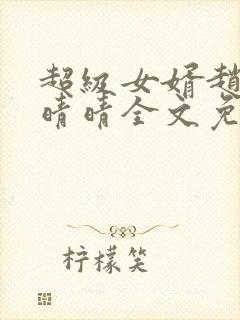 超级女婿趙
晴晴全文免
柠檬笑